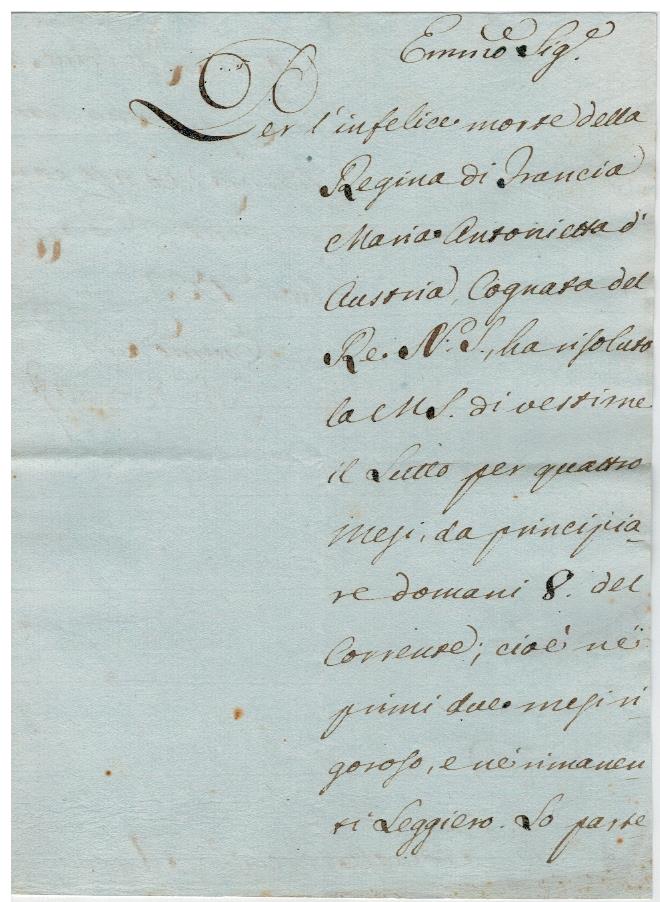 Emmo Sigre
Per l'infelice morte della
Regina di Francia
Maria Antonietta d'
Austria, Cognata del
Re N. S., ha risoluto
la M. S. di vestirne
il Lutto per quattro
Mesi, da principia-
re domani 8. del
Corrente; cioè ne'
primi due mesi ri-
goroso, e ne' rimanen-
ti Leggiero. Lo parte